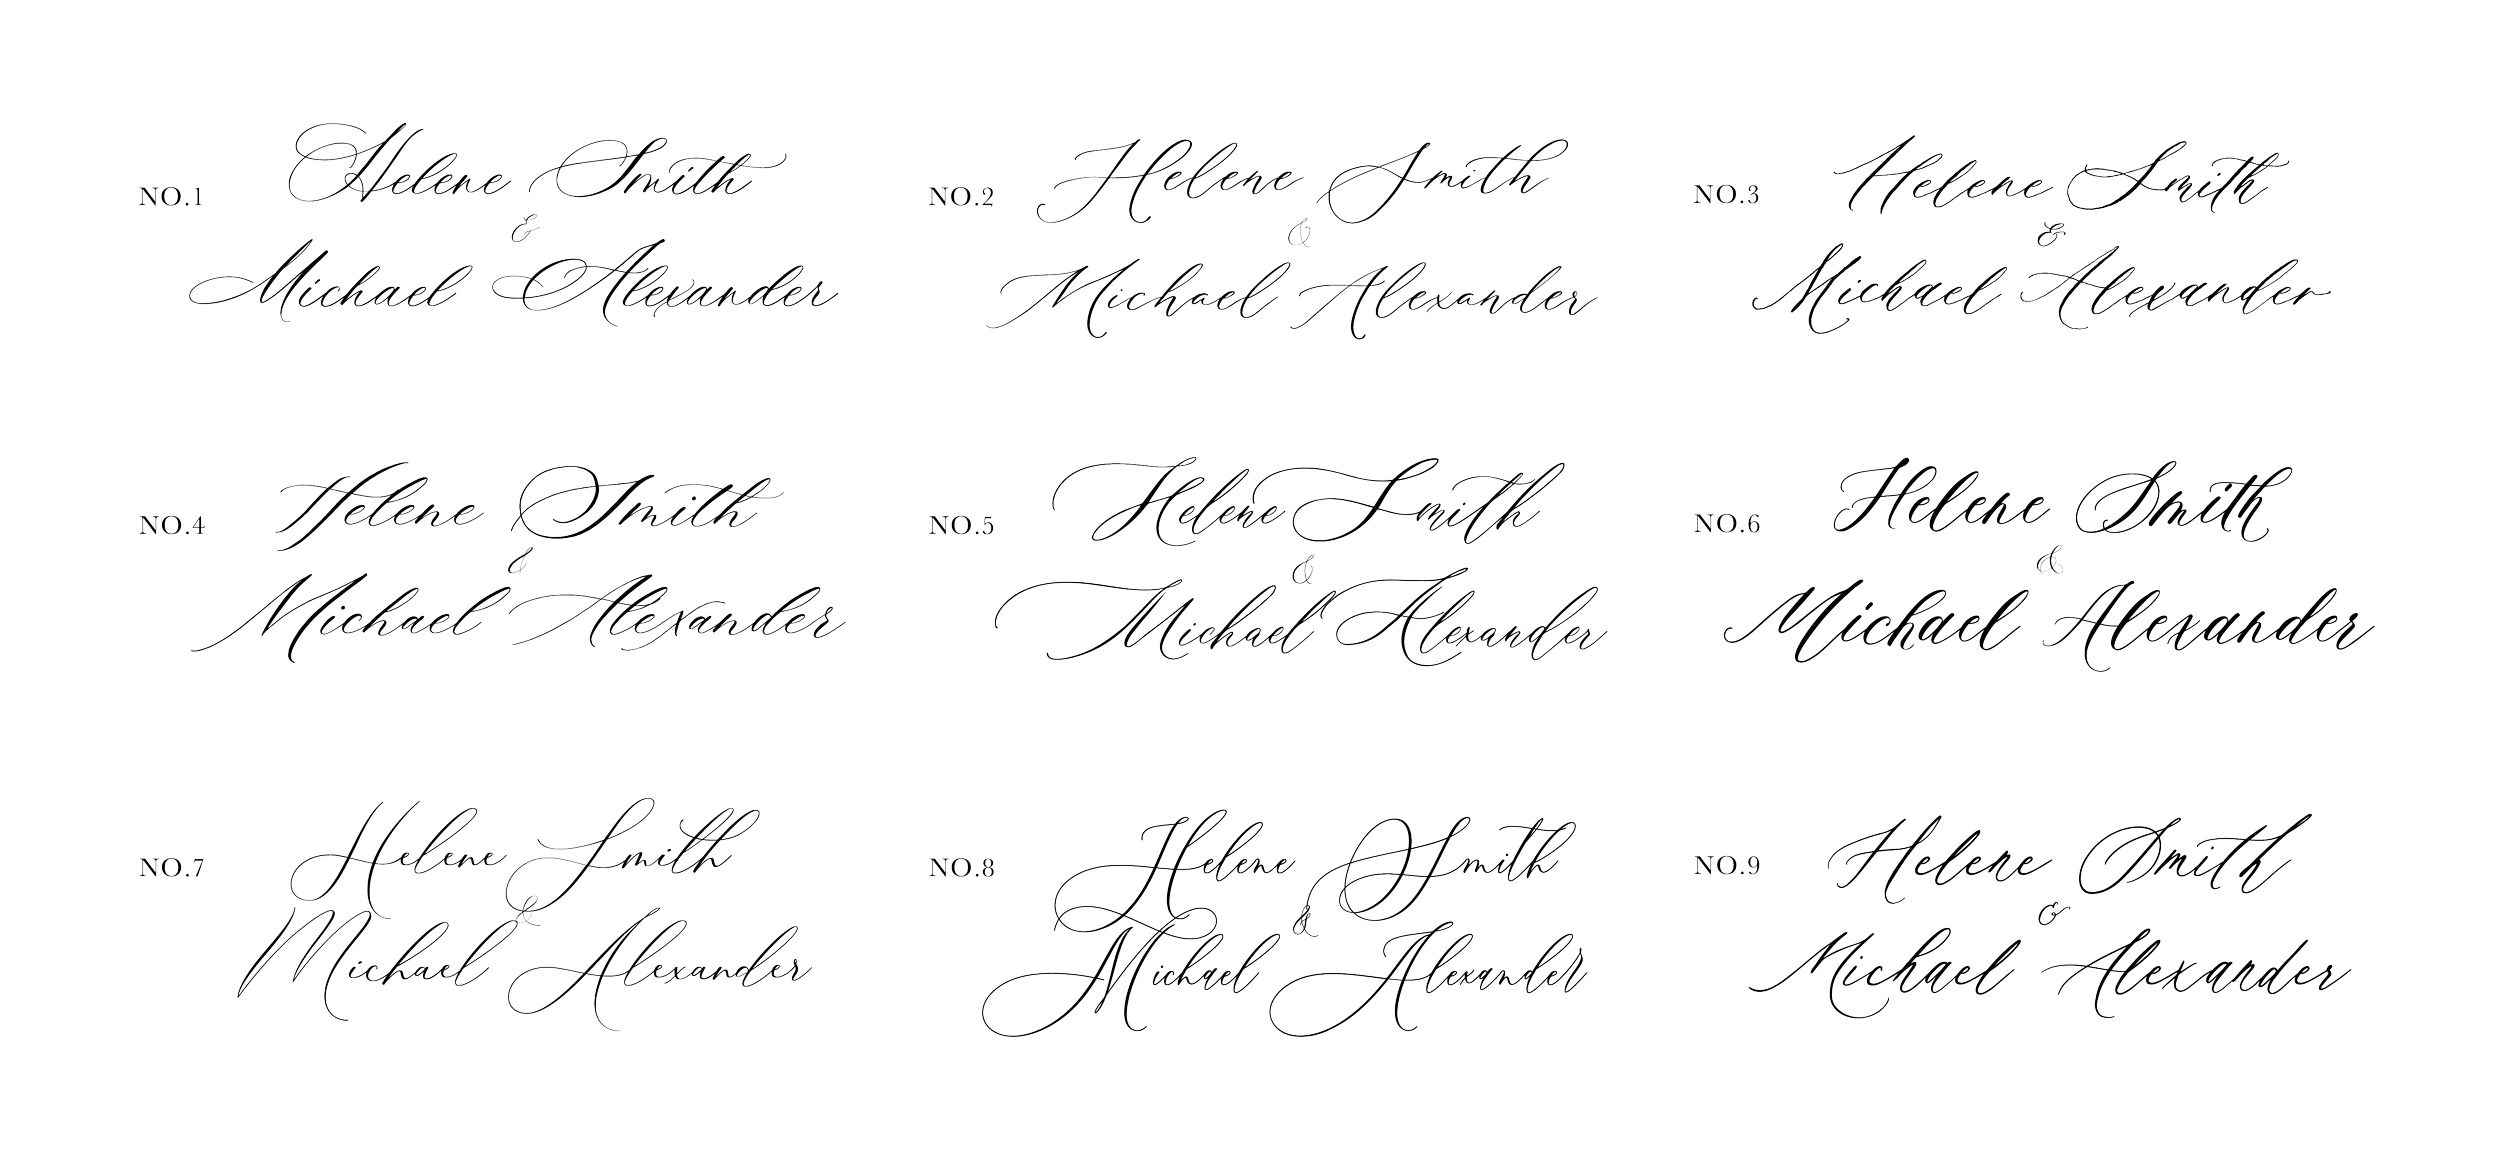 NO.1
Helene Smith
&
Michael Alexander
NO.2
Helene Smith
&
Michael Alexander
NO.3
Helene Smith
&
Michael Alexander
NO.4
Helene Smith
&
Michael Alexander
NO.5
Helene Smith
&
Michael Alexander
NO.6
Helene Smith
&
Michael Alexander
NO.7
Helene Smith
&
Michael Alexander
NO.8
Helene Smith
&
Michael Alexander
NO.9
Helene Smith
&
Michael Alexander